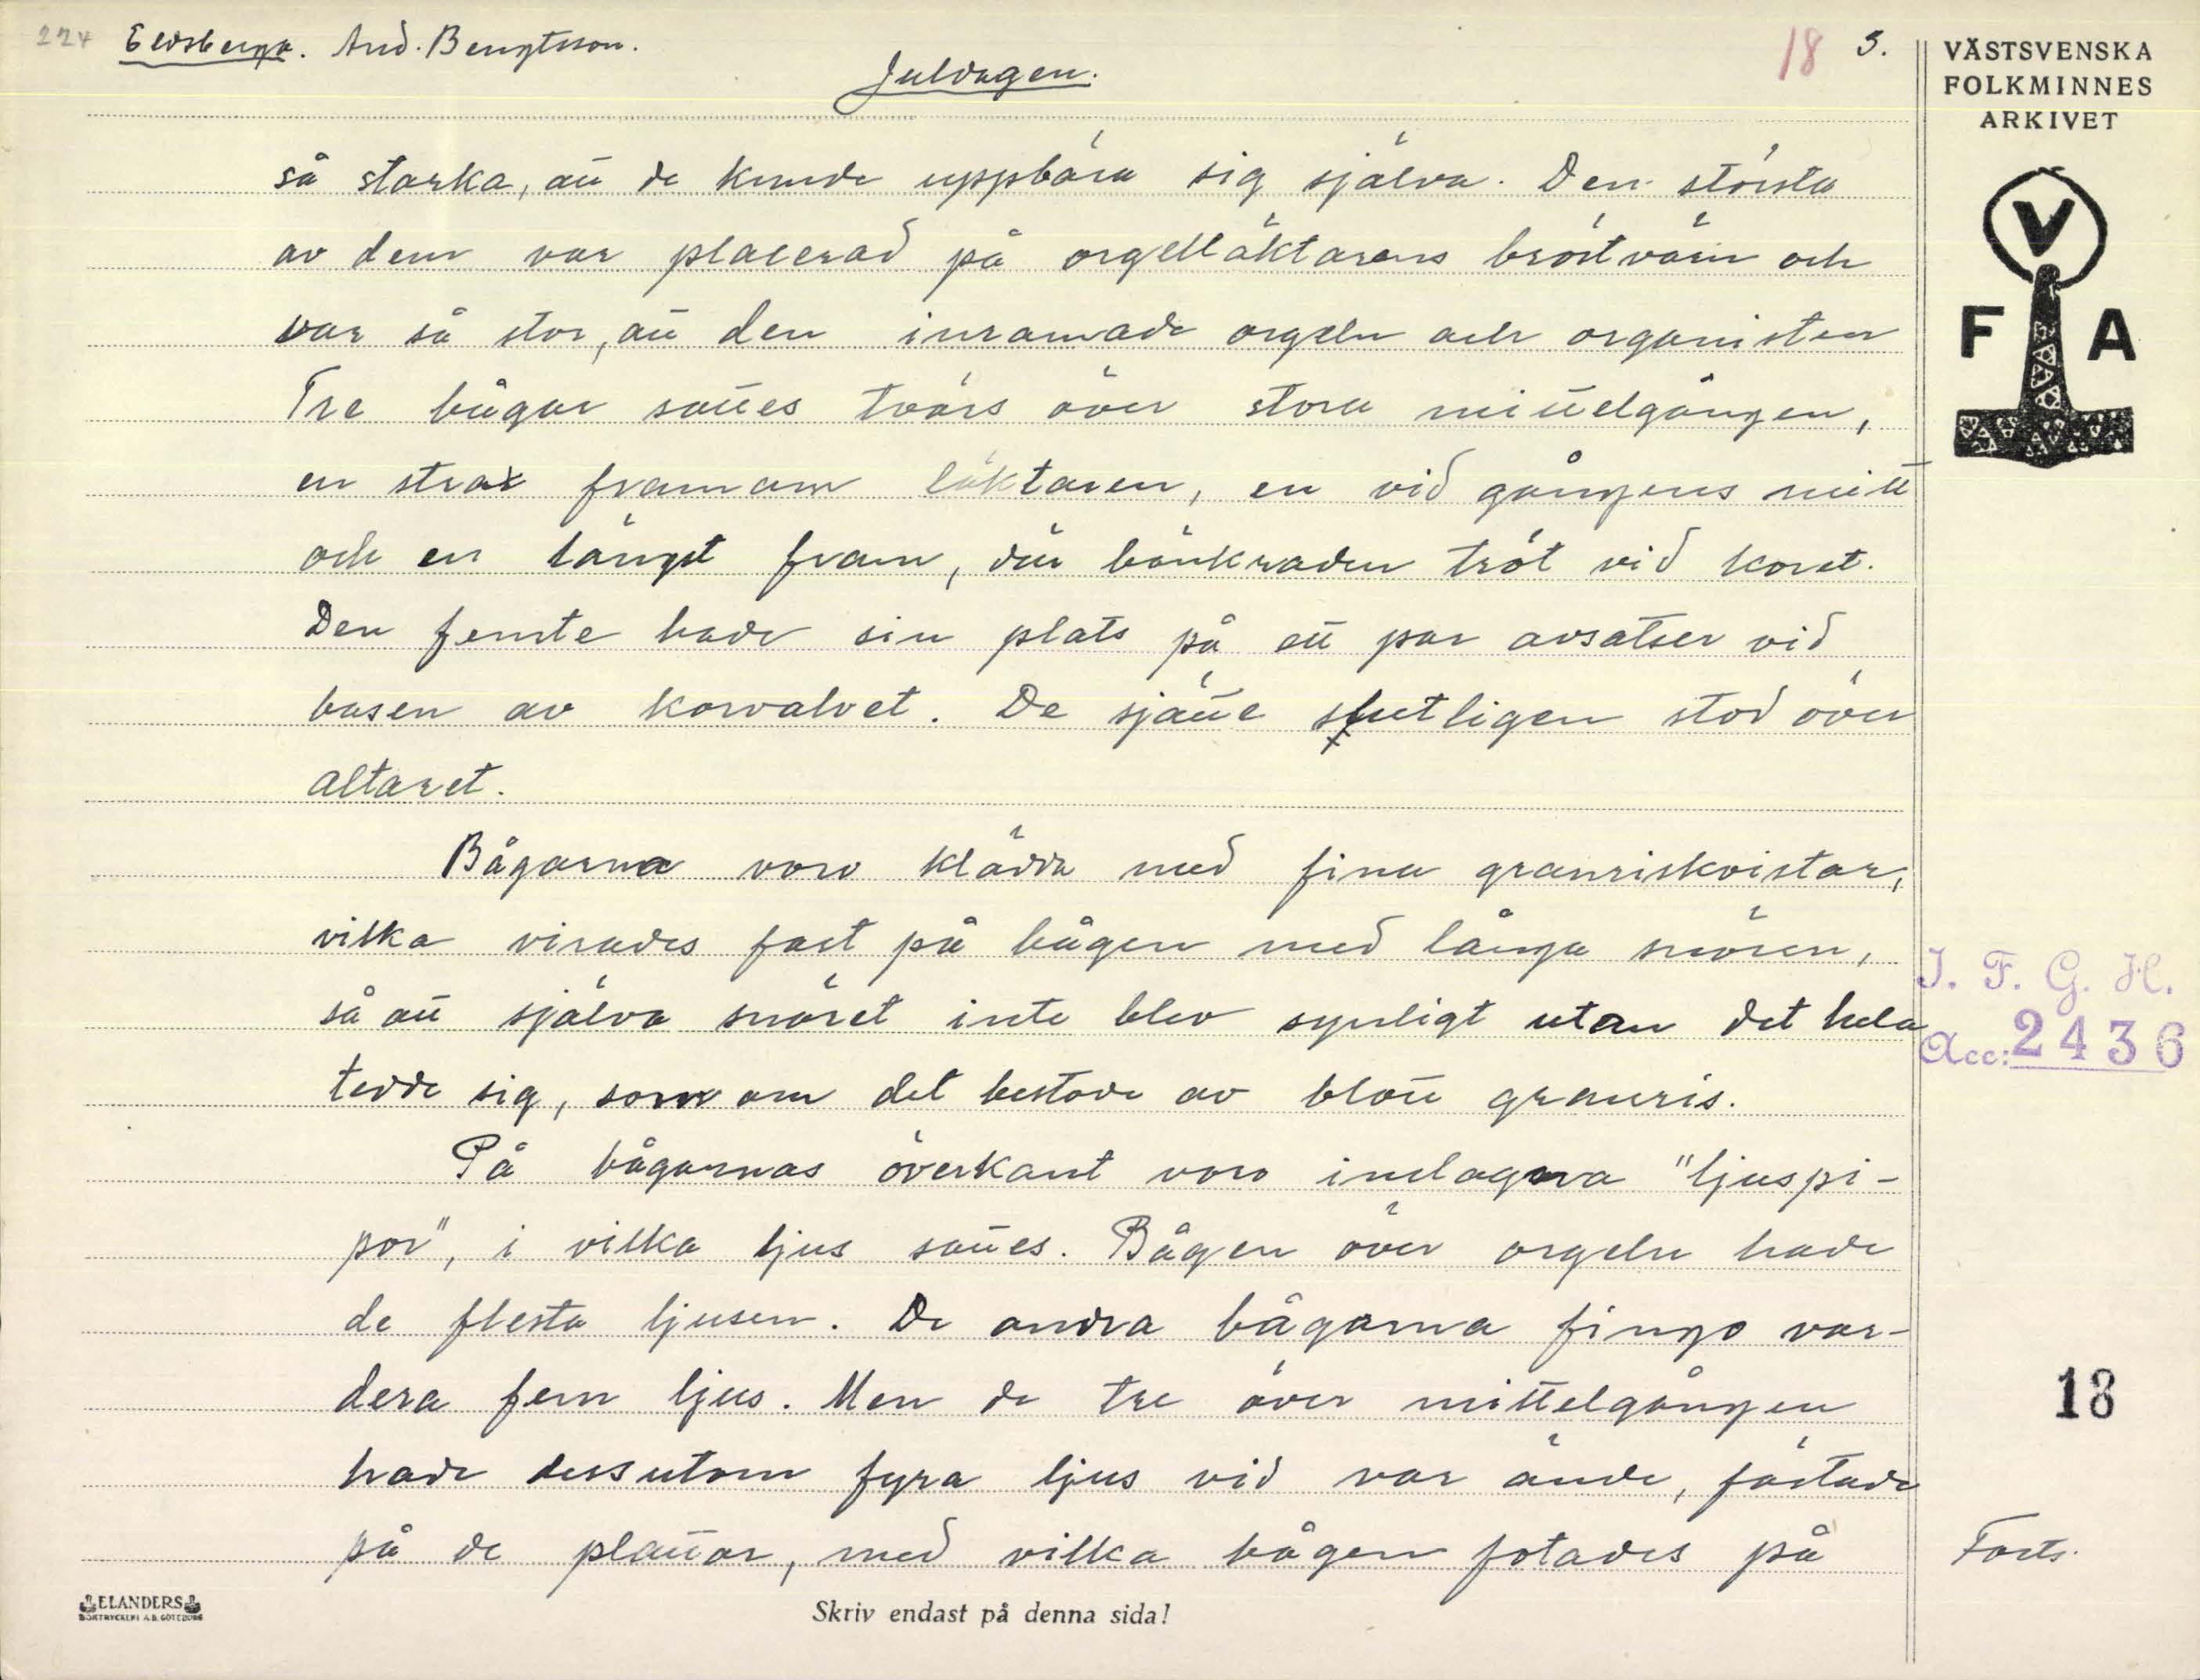 224 Eldsberga. And. Bengtsson. 18 3.
Juldagen.
VÄSTSVENSKA
FOLKMINNES
ARKIVET
V
F A
så starka, att de kunde uppbära sig själva. Den största
av dem var placerad på orgelläktarens bröstvärn och
var så stor, att den inramade orgeln och organisten
Tre bågar sattes tvärs över stora mittelgången,
en strax framom läktaren, en vid gångens mitt
och en längst fram, där bänkraden tröt vid koret.
Den femte hade sin plats på ett par avsatser vid
basen av korvalvet. De sjätte slutligen stod över
altaret.
Bågarna voro klädda med fina granriskvistar,
vilka virades fast på bågen med långa snören,
så att själva snöret inte blev synligt utan det hela
tedde sig, som om det bestode av blott granris.
På bågarnas överkant voro indragna "ljuspi-
por", i vilka ljus sattes. Bågen över orgeln hade
de flesta ljusen. De andra bågarna fingo var-
dera fem ljus. Men de tre över mittelgången
hade dessutom fyra ljus vid var ände, fästade
på de plattor, med vilka bågen fotades på
I. F. G. H.
Acc: 2436
18
Forts.
ELANDERS
BOKTRYCKERI A.B. GÖTEBORG
Skriv endast på denna sida!